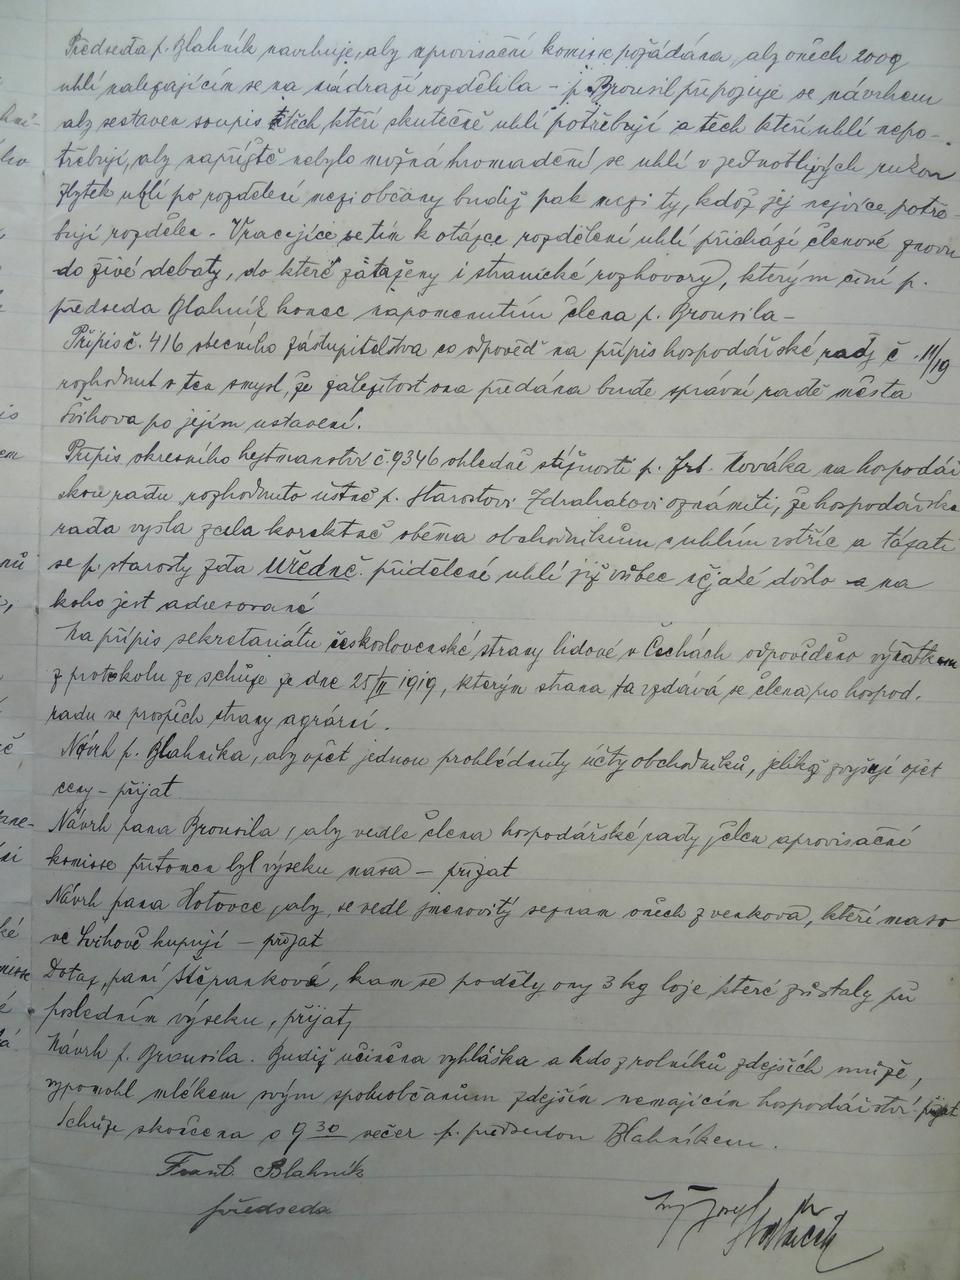 Předseda p. Blahník navrhuje, aby aprovisační komisse požádána, aby oněch 200q
uhlí nalezajícím se na nádraží rozdělila – p. Brousil připojuje se návrhem
aby sestaven soupis těch kteří skutečně uhlí potřebují a těch kteří uhlí nepo-
třebují, aby napříště nebylo možná hromadění se uhlí v jednotlivých rukou
Zbytek uhlí po rozdělení mezi občany budiž pak mezi ty, kdož jej nejvíce potře-
bují rozdělen. Vracejíce se tím k otázce rozdělení uhlí přichází členové znovu
do živé debaty, do které zataženy i stranické rozhovory, kterým činí p.
předseda Blahník konec napomenutím člena p. Brousila –
Přípis č. 416 obecního zástupitelstva co odpověď na přípis hospodářské rady č. 11/19
rozhodnut v ten smysl, že záležitost ona předána bude správní radě města
Švihova po jejím ustavení.
Přípis okresního hejtmanství č. 9346 ohledně stížnosti p. Jos. Nováka na hospodář
skou radu rozhodnuto ústně p. starostovi Zdrahalovi oznámiti, že hospodářská
rada vyšla zcela korektně oběma obchodníkům s uhlím vstříc a tázati
se p. starosty zda úředně přidělené uhlí již vůbec nějaké došlo a na
koho jest adresované
Na přípis sekretariátu československé strany lidové v Čechách odpověděno výňatkem
z protokolu ze schůze ze dne 25/II 1919, kterým strana ta vzdává se člena pro hospod.
radu ve prospěch strany agrární.
Návrh p. Blahníka, aby opět jednou prohlédnuty účty obchodníků, jelikož zvyšují opět
ceny – přijat
Návrh pana Brousila, aby vedle člena hospodářské rady člen aprovisační
komisse přítomen byl výseku masa – přijat
Návrh pana Hotovce, aby se vedl jmenovitý seznam oněch z venkova, kteří maso
ve Švihově kupují – přijat
Dotaz paní Štěpánkové, kam se poděly ony 3 kg loje, které zůstaly při
posledním výseku, přijat,
Návrh p. Brousila. Budiž učiněna vyhláška a kdo z rolníků zdejších může,
vypomohl mlékem svým spoluobčanům zdejším nemajícím hospodářství. přijat
Schůze skončena o 9 30 večer p. předsedou Blahníkem.
Frant. Blahník
předseda